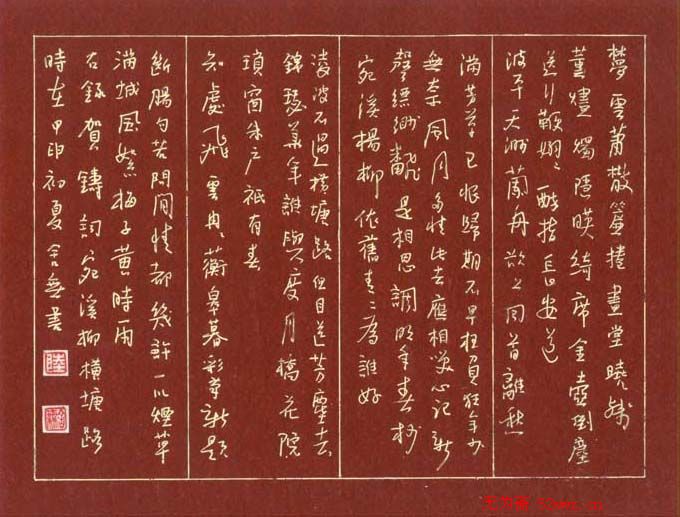 夢雲蕭散簾捲畫堂曉殘
薰燼燭隱映綺席金壺倒塵
送行鞭嫋々醉指長安道
波平天渺蘭舟欲上回首離愁
滿芳草已恨歸期不早枉負狂年少
無奈風月多情此去應相笑心記新
聲縹緲翻是相思調明年春杪
宛溪楊柳依舊青々為誰好
凌波不過橫塘路但目送芳塵去
錦瑟華年誰與度月橋花院
瑣窗朱戶祇有春
知處飛雲冉々蘅皋暮彩筆新題
斷腸句若問閒情都幾許一川煙草
滿城風絮梅子黃時雨
右錄賀鑄詞宛溪柳橫塘路
時在甲申初夏舍無書
陸